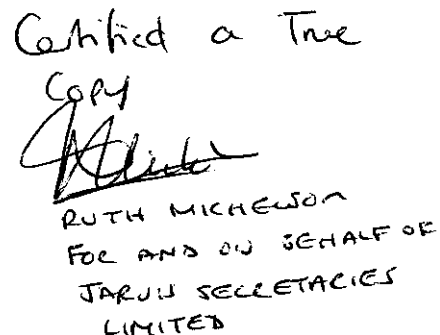 Certified a True
Copy
RUTH MICHELSON
FOR AND ON BEHALF OF
JARVIS SECRETARIES
LIMITED